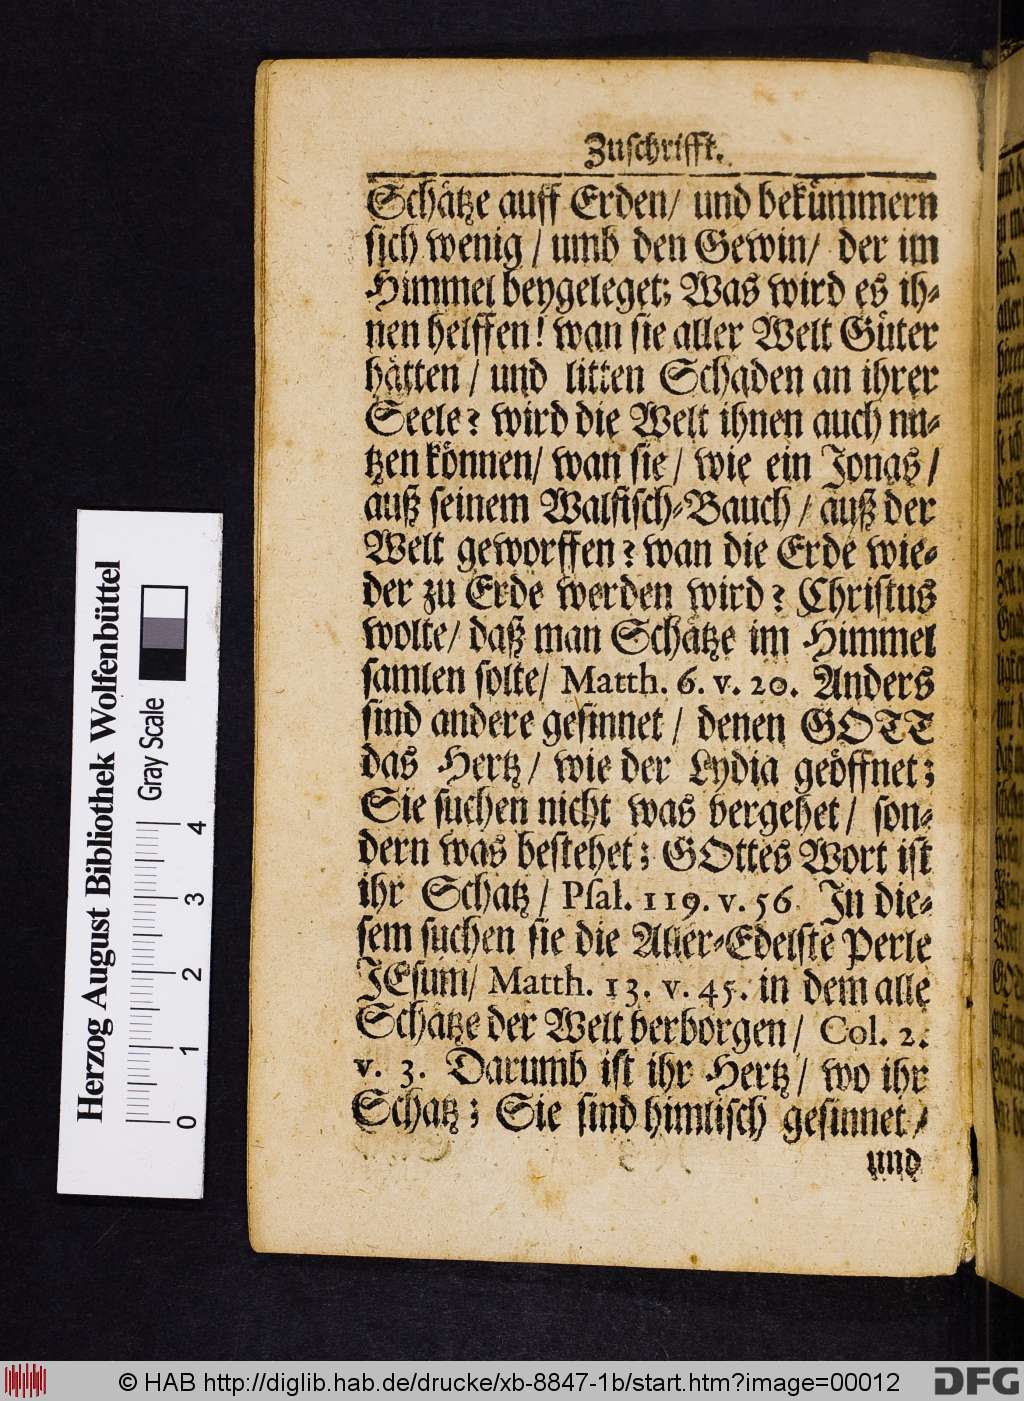 Zuschrifft.
Schätze auff Erden/ und bekümmern
sich wenig / umb den Gewin/ der im
Himmel beygeleget; Was wird es ih-
nen helffen! wan sie aller Welt Güter
hätten / und litten Schaden an ihrer
Seele? wird die Welt ihnen auch nu-
tzen können/ wan sie / wie ein Jonas /
auß seinem Walfisch-Bauch / auß der
Welt geworffen? wan die Erde wie-
der zu Erde werden wird? Christus
wolte/ daß man Schätze im Himmel
samlen solte/ Matth. 6. v. 20. Anders
sind andere gesinnet / denen GOTT
das Hertz / wie der Lydia geöffnet;
Sie suchen nicht was vergehet / son-
dern was bestehet; GOttes Wort ist
ihr Schatz / Psal. 119. v. 56 In die-
sem suchen sie die Aller-Edelste Perle
JEsum/ Matth. 13. v. 45. in dem alle
Schätze der Welt verborgen / Col. 2.
v. 3. Darumb ist ihr Hertz / wo ihr
Schatz; Sie sind himlisch gesinnet /
und
Herzog August Bibliothek Wolfenbüttel
Gray Scale
0 1 2 3 4
© HAB http://diglib.hab.de/drucke/xb-8847-1b/start.htm?image=00012
DFG